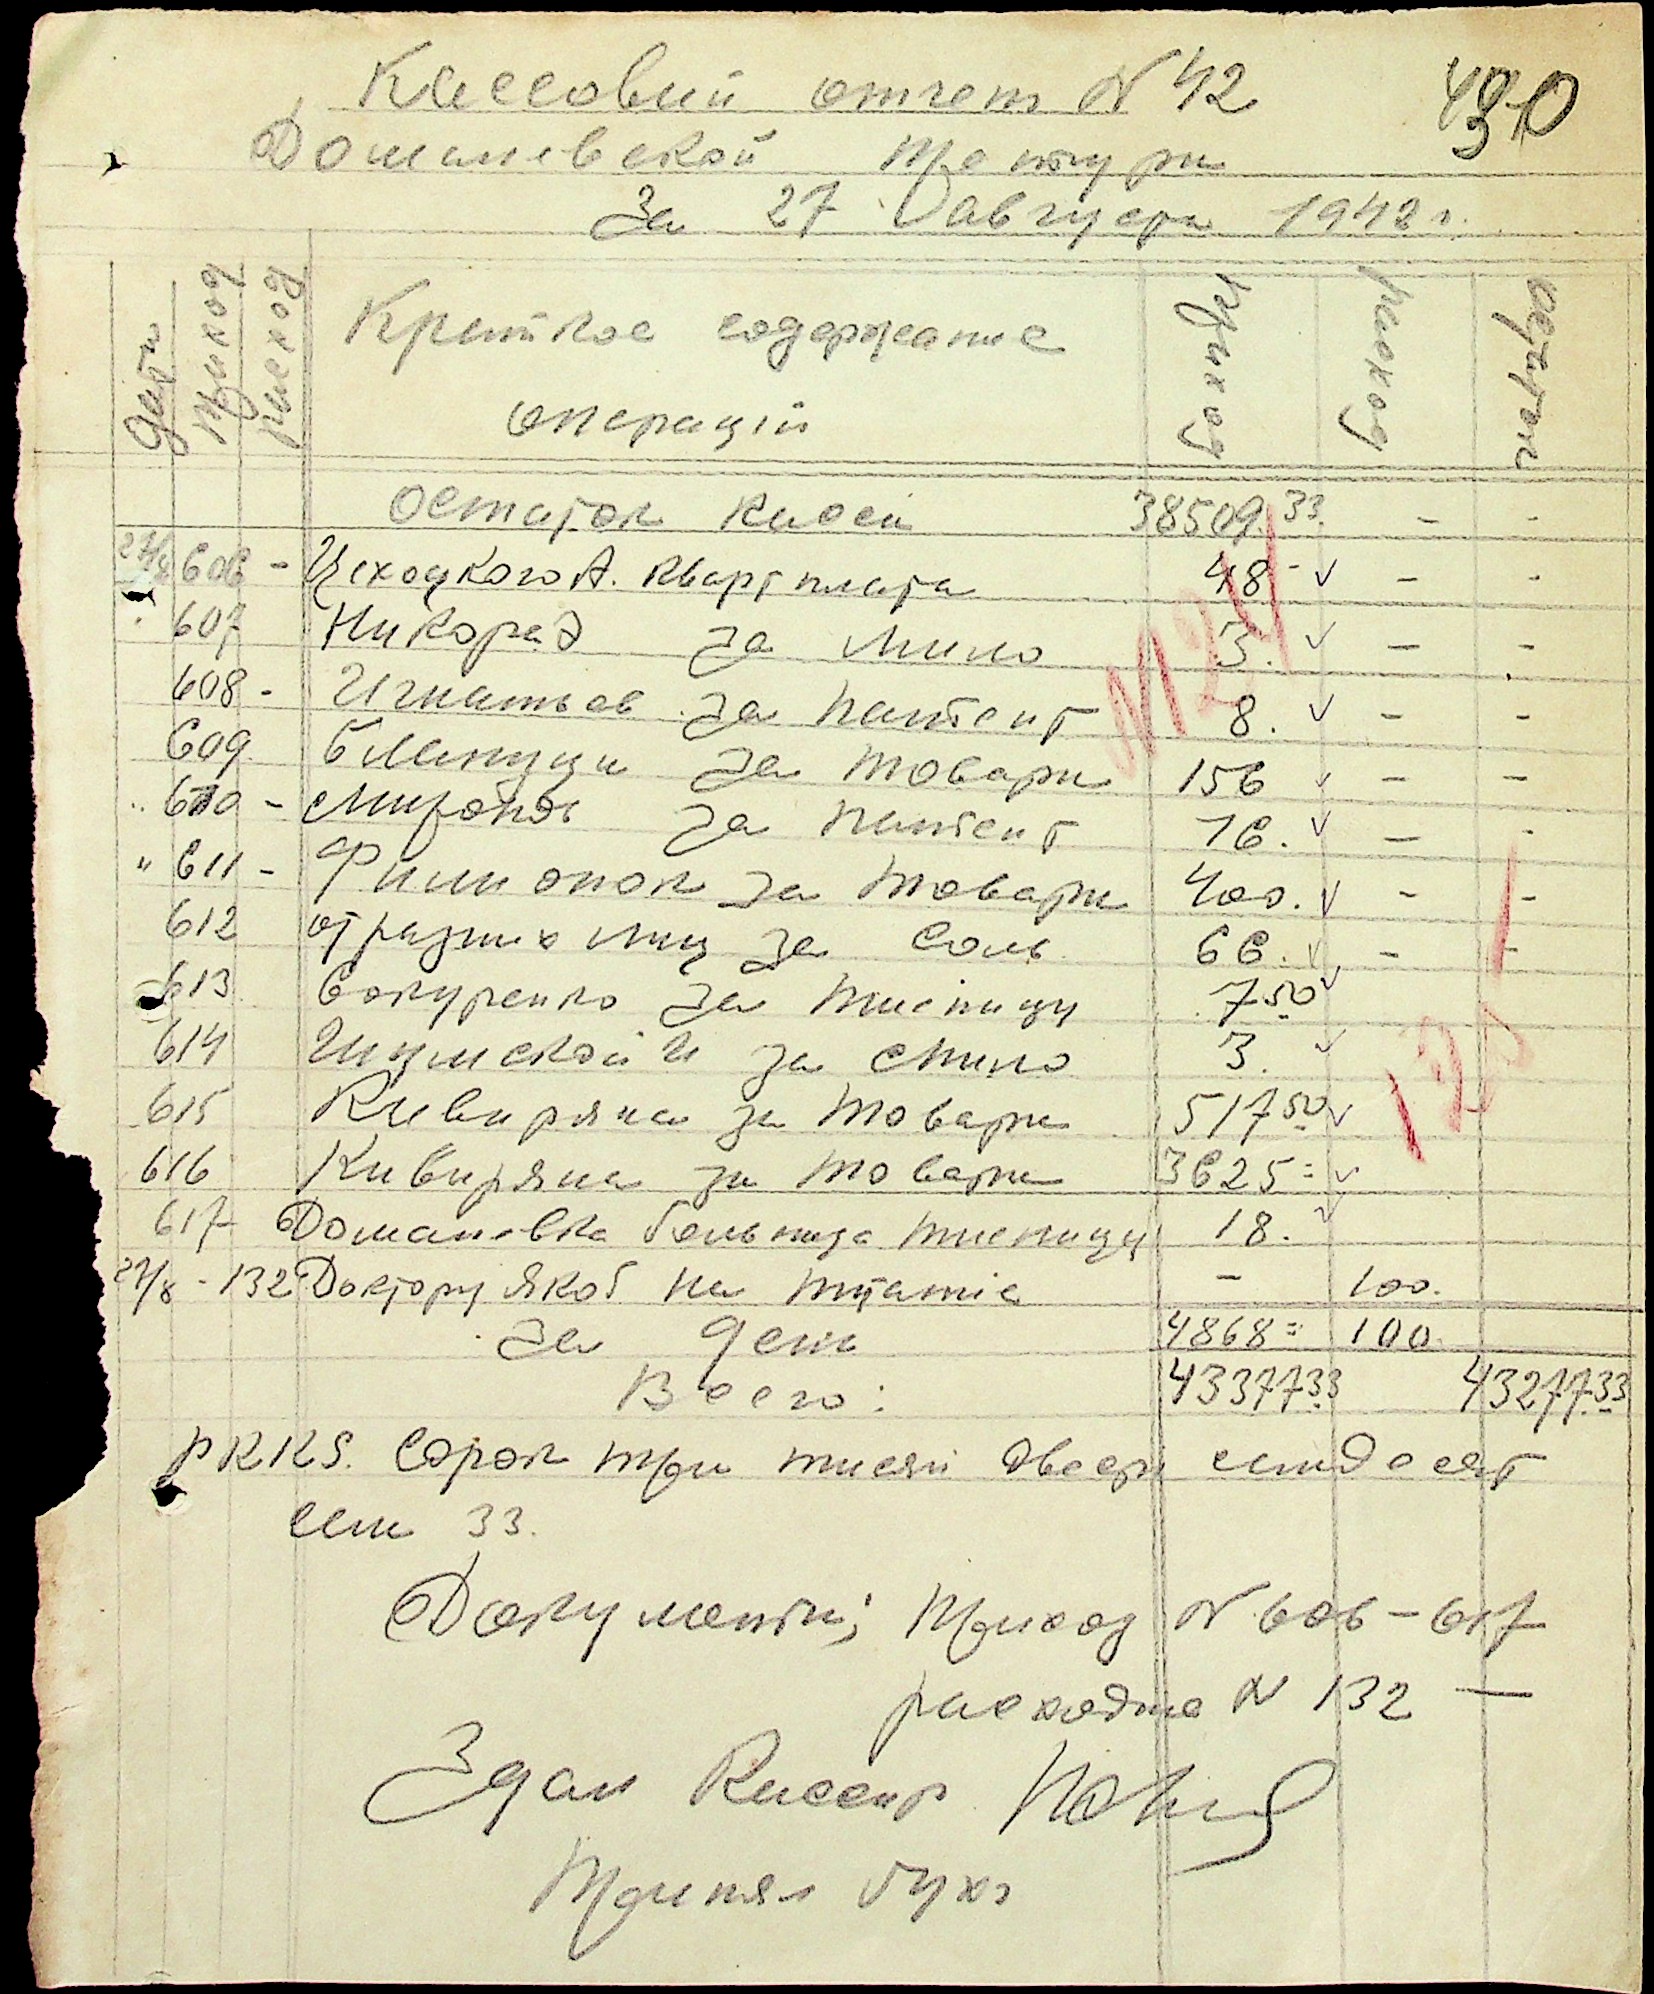 Кассовий отчет N 42
430
Доманевской претури
За 27 августа 1942 г.
Дати
Приход
расход
Краткое содержание
операций
Приход
расход
остаток
Остаток касси 38509.33 - -
27/8 606 - Цехоцкого А. квартплата 48 - v - -
607 Никора За мило 3. v - -
608 - Игнатьев За патент 8. v - -
609. За товари 156 v - -
" 610 - Миронов За патент 16. v - -
" 611 - Филионок за товари 400. v - -
612 от разних лиц за соль 66. v - -
613 за пшеницу 7.50 v
614 Шумской И за мило 3. v
615 Кивиряна за товари 517 50 v
616 Кивиряна за товари 3625 = v
617 Доманевка больница пшеницу 18. v
27/8 - 132 Доктору Якоб на питаніе - 100.
За день 4868 = 100.
Всего: 43377 33 43277.33
РККS. Сорок три тисячи двести семдесят
сем 33.
Документи; Приход N 606 - 617
расходние N 132 —
Здал Кассир
Принял бухг